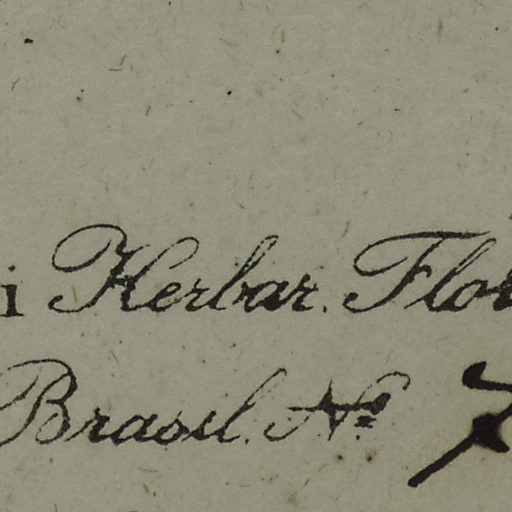 i Herbar. Flor
Brasil. Nº 7